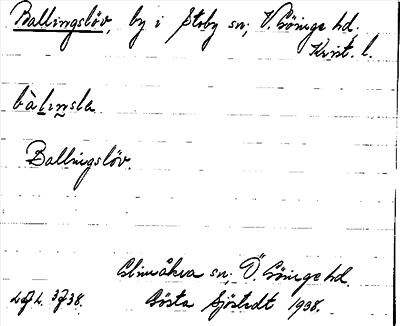 Ballingslöv, by i Stoby sn; V. Göinge hd.
Krist. l.
bàlinsla
Ballingslöv.
Glimåkra sn; Ö. Göinge hd.
Gösta Sjöstedt 1938.